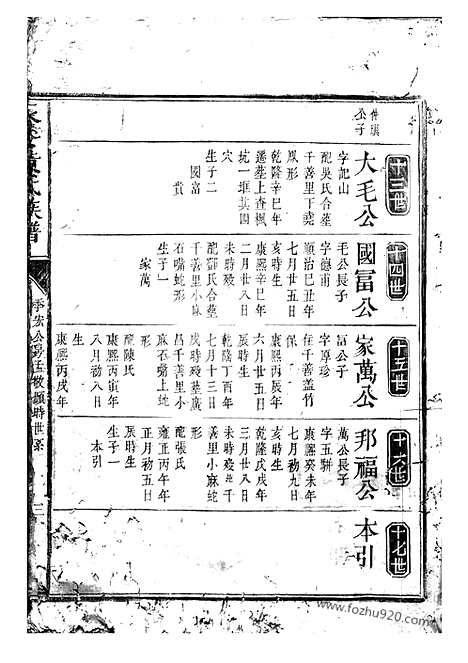 十三世
仲琪公子
大毛公
字記山
配吳氏合墓
千善里下堯
鳳形
乾隆辛巳年
遷葬上查楓
坑一堆其圓
穴
生子二
國富
貴
十四世
國富公
毛公長子
字德甫
順治己丑年
七月廿五日
亥時生
康熙辛巳年
二月廿八日
未時歿
配鄧氏合墓
千善里小麻
石嘴蛇形
生子一
家萬
十五世
家萬公
富公子
字厚珍
住千善蓋竹
保
康熙丙辰年
六月廿五日
亥時生
乾隆十三年
七月十三日
戌時歿墓廣
昌千善里小
麻石嘴上蛇
形
配陳氏
康熙丙寅年
八月初八日
生
康熙丙戌年
十六世
邦福公
萬公長子
字五駢
康熙癸未年
七月初九日
辰時生
乾隆戊戌年
三月廿八日
未時歿墓千
善里小麻蛇
形
配張氏
雍正丙午年
正月初五日
辰時生
生子一
本引
十七世
本引
氏族譜
季宏公房孟敏顯時世系
www.fozhu920.com